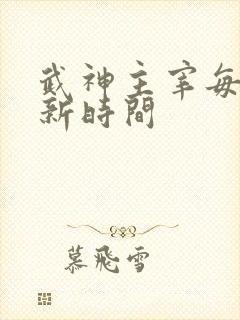 武神主宰每
新時間
慕飛雪